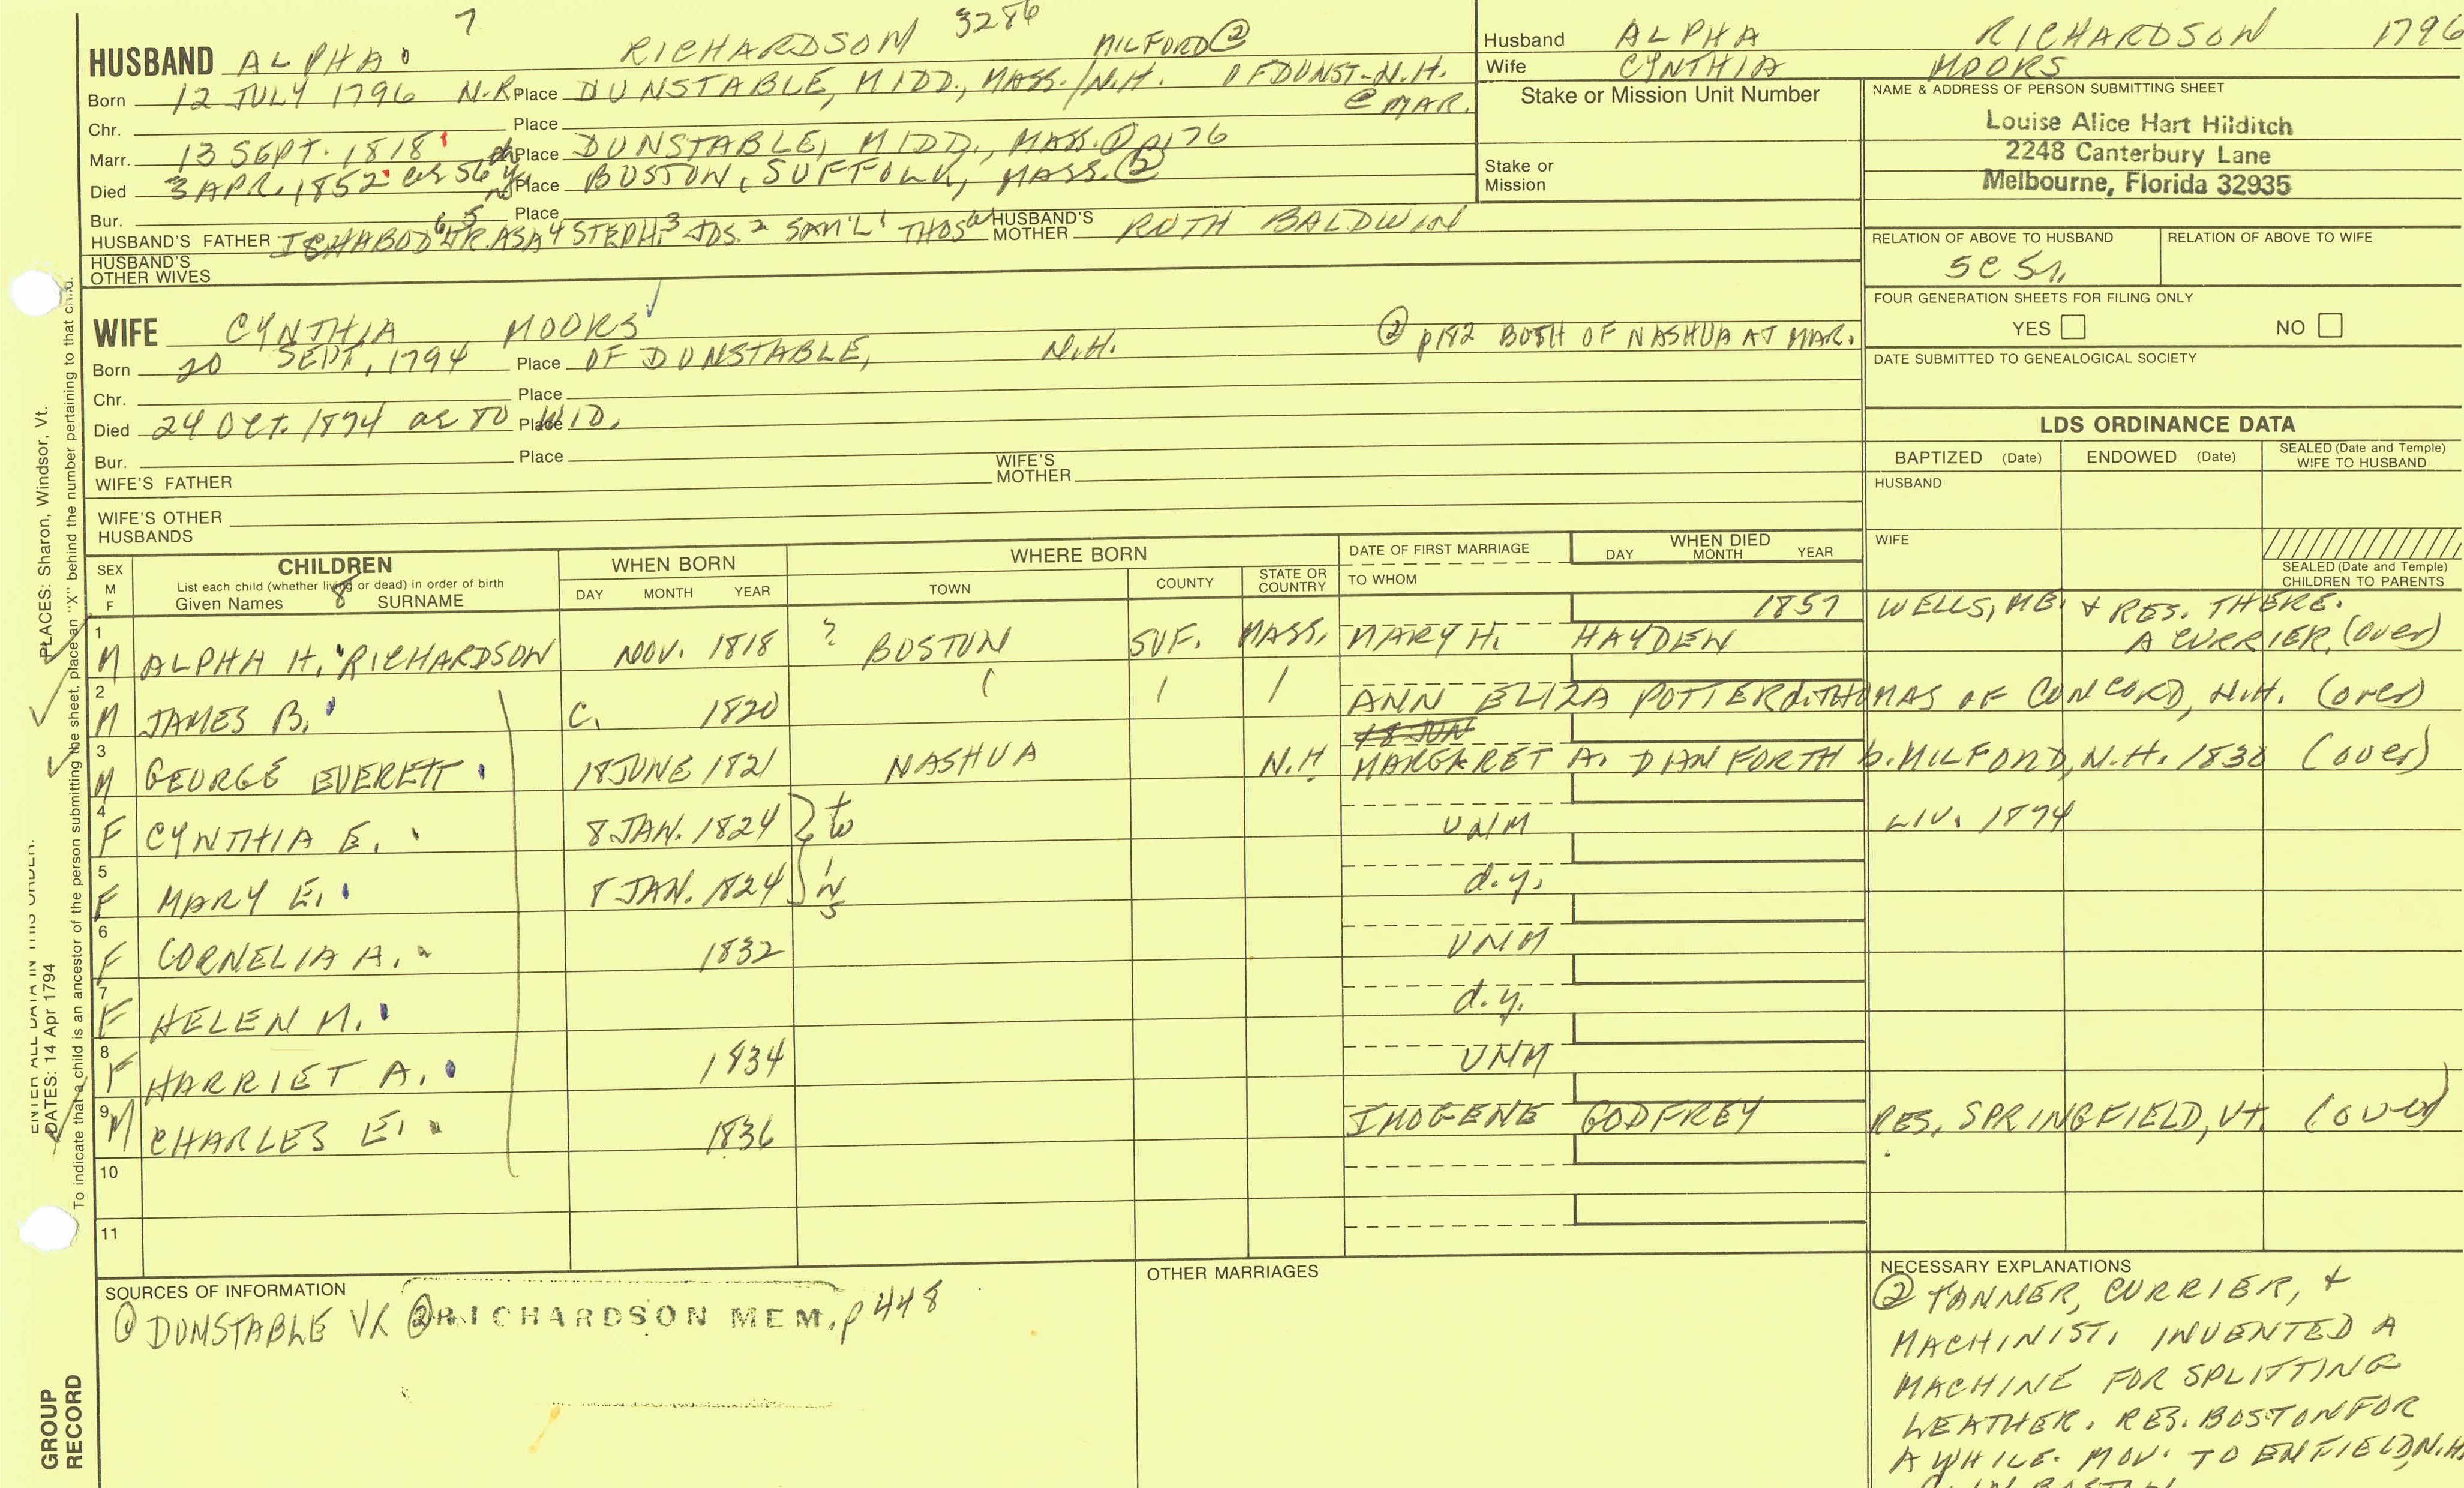 7 3286
HUSBAND ALPHA RICHARDSON MILFORD ②
Born 12 JULY 1796 N.R. Place DUNSTABLE, MIDD., MASS./N.H. OF DUNST-N.H.
@ MAR.
Chr. Place
Marr. 13 SEPT. 1818 Place DUNSTABLE, MIDD., MASS. ① p176
Died 3 APR. 1852 ae 56 Place BOSTON, SUFFOLK, MASS. ②
Bur. Place
HUSBAND'S FATHER ICHABOD 6 JR. 5 ASA 4 STEPH. 3 JOS. 2 SAM'L 1 THOS HUSBAND'S MOTHER RUTH BALDWIN
HUSBAND'S
OTHER WIVES
WIFE CYNTHIA MOORS ② p182 BOTH OF NASHUA AT MAR.
Born 20 SEPT, 1794 Place OF DUNSTABLE, N.H.
Chr. Place
Died 24 OCT. 1874 ae 80 Place WID.
Bur. Place
WIFE'S FATHER WIFE'S MOTHER
WIFE'S OTHER
HUSBANDS
Husband ALPHA RICHARDSON 1796
Wife CYNTHIA MOORS
Stake or Mission Unit Number
Stake or
Mission
NAME & ADDRESS OF PERSON SUBMITTING SHEET
Louise Alice Hart Hilditch
2248 Canterbury Lane
Melbourne, Florida 32935
RELATION OF ABOVE TO HUSBAND RELATION OF ABOVE TO WIFE
5C 5r,
FOUR GENERATION SHEETS FOR FILING ONLY
YES NO
DATE SUBMITTED TO GENEALOGICAL SOCIETY
LDS ORDINANCE DATA
BAPTIZED (Date) ENDOWED (Date) SEALED (Date and Temple)
WIFE TO HUSBAND
HUSBAND
WIFE
SEALED (Date and Temple)
CHILDREN TO PARENTS
SEX
M
F
CHILDREN
List each child (whether living or dead) in order of birth
Given Names 8 SURNAME
WHEN BORN
DAY MONTH YEAR
WHERE BORN
TOWN COUNTY STATE OR COUNTRY
DATE OF FIRST MARRIAGE
TO WHOM
WHEN DIED
DAY MONTH YEAR
1 M ALPHA H. RICHARDSON NOV. 1818 ? BOSTON SUF. MASS. MARY H. HAYDEN 1857 WELLS, ME. & RES. THERE.
A CURRIER. (over)
2 M JAMES B. C. 1820 ANN ELIZA POTTER d. THOMAS OF CONCORD, N.H. (over)
18 JUN
3 M GEORGE EVERETT 18 JUNE 1821 NASHUA N.H MARGARET A. DIANFORTH b. MILFORD, N.H. 1830 (over)
4 F CYNTHIA E. 8 JAN. 1824 } tw UNM LIV. 1874
5 F MARY E. 8 JAN. 1824 } ins d.y.
6 F CORNELIA A. 1832 UNM
7 F HELEN M. d.y.
8 F HARRIET A. 1834 UNM
9 M CHARLES E. 1836 IMOGENE GODFREY RES. SPRINGFIELD, Vt. (over)
10
11
SOURCES OF INFORMATION
① DUNSTABLE VR ② RICHARDSON MEM. p 448
OTHER MARRIAGES
NECESSARY EXPLANATIONS
② TANNER, CURRIER, &
MACHINIST, INVENTED A
MACHINE FOR SPLITTING
LEATHER. RES. BOSTON FOR
A WHILE. MOV. TO ENFIELD, N.H.
PLACES: Sharon, Windsor, Vt.
DATES: 14 Apr 1794
To indicate that a child is an ancestor of the person submitting the sheet, place an "X" behind the number pertaining to that child.
ENTER ALL DATA IN THIS ORDER:
GROUP
RECORD